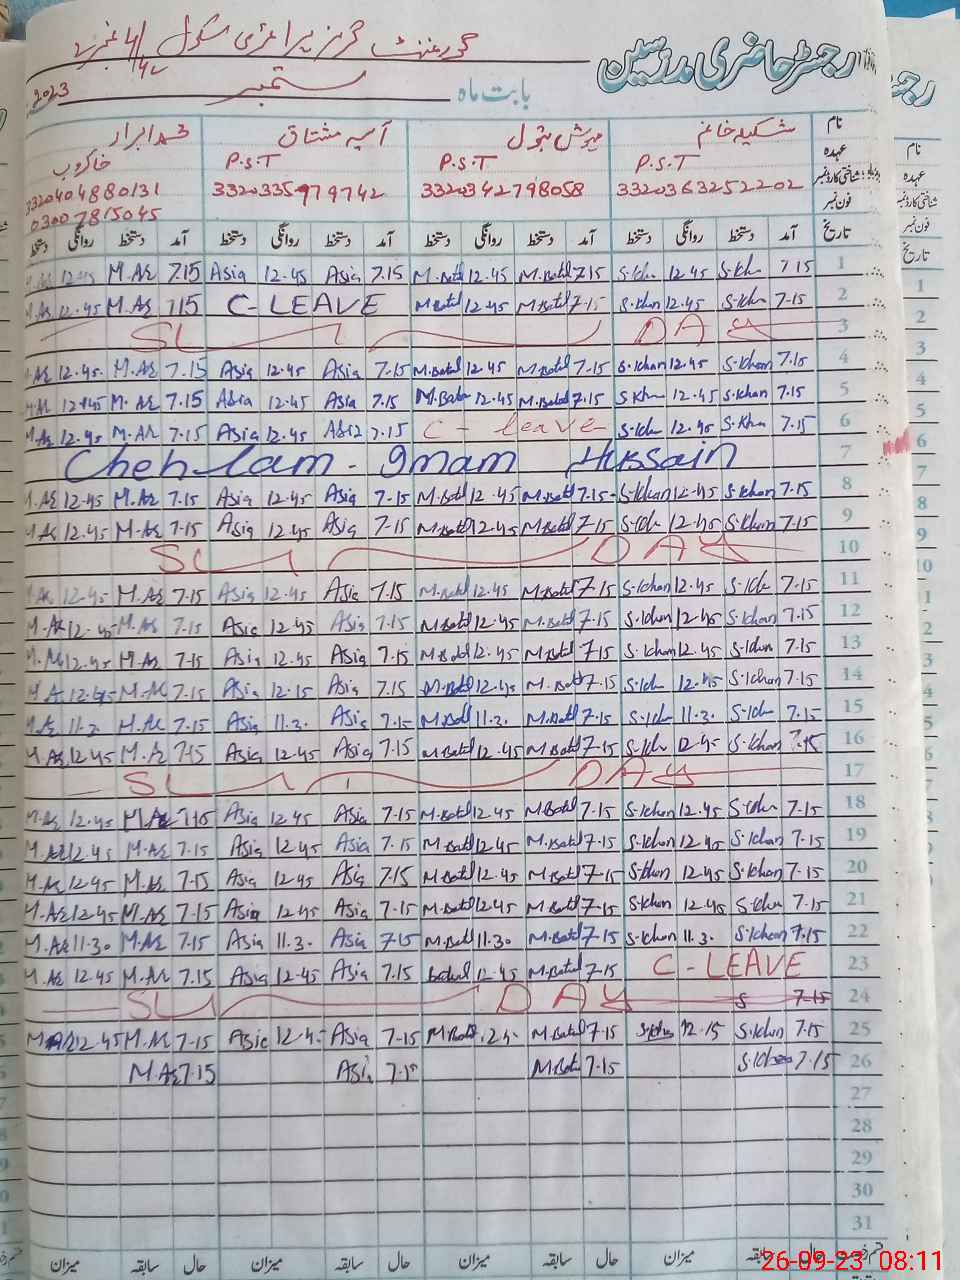 رجسٹر حاضری مدرسین
گورنمنٹ گرلز پرائمری سکول
بابت ماہ ستمبر 2023
نام شکیلہ خانم مہوش بتول آسیہ مشتاق محمد ابرار
عہدہ P.S.T P.S.T P.S.T خاکروب
شناختی کارڈ نمبر 3320363252202 3320342798058 3320335979742 3320404880131
فون نمبر 03007815045
تاریخ آمد دستخط روانگی دستخط آمد دستخط روانگی دستخط آمد دستخط روانگی دستخط آمد دستخط روانگی دستخط
1 7.15 S.Kh 12.45 S.Kh 7.15 M.Batul 12.45 M.Batul 7.15 Asia 12.45 Asia 7.15 M.Ar 12.45
2 7.15 S.Khan 12.45 S.Khan 7.15 M.Batul 12.45 M.Batul C-LEAVE 7.15 M.Ar 12.45 M.Ar
3 SUNDAY
4 7.15 S.Khan 12.45 S.Khan 7.15 M.Batul 12.45 M.Batul 7.15 Asia 12.45 Asia 7.15 M.Ar 12.45 M.Ar
5 7.15 S.Khan 12.45 S.Kha 7.15 M.Batul 12.45 M.Batul 7.15 Asia 12.45 Asia 7.15 M.Ar 12.45 M.Ar
6 7.15 S.Kha 12.45 S.Kh C-leave 7.15 Asia 12.45 Asia 7.15 M.Ar 12.45 M.Ar
7 Chehlam - Imam Hussain
8 7.15 S.Khan 12.45 S.Khan 7.15 M.Batul 12.45 M.Batul 7.15 Asia 12.45 Asia 7.15 M.Ar 12.45 M.Ar
9 7.15 S.Khan 12.45 S.Kh 7.15 M.Batul 12.45 M.Batul 7.15 Asia 12.45 Asia 7.15 M.Ar 12.45 M.Ar
10 SUNDAY
11 7.15 S.Kh 12.45 S.Khan 7.15 M.Batul 12.45 M.Batul 7.15 Asia 12.45 Asia 7.15 M.Ar 12.45 M.Ar
12 7.15 S.Khan 12.45 S.Khan 7.15 M.Batul 12.45 M.Batul 7.15 Asia 12.45 Asia 7.15 M.Ar 12.45 M.Ar
13 7.15 S.Khan 12.45 S.Khan 7.15 M.Batul 12.45 M.Batul 7.15 Asia 12.45 Asia 7.15 M.Ar 12.45 M.Ar
14 7.15 S.Khan 12.45 S.Kh 7.15 M.Batul 12.45 M.Batul 7.15 Asia 12.15 Asia 7.15 M.Ar 12.45 M.Ar
15 7.15 S.Kh 11.3. S.Kh 7.15 M.Batul 11.3. M.Batul 7.15 Asia 11.3. Asia 7.15 M.Ar 11.3 M.Ar
16 7.15 S.Khan 12.45 S.Kh 7.15 M.Batul 12.45 M.Batul 7.15 Asia 12.45 Asia 7.15 M.Ar 12.45 M.Ar
17 SUNDAY
18 7.15 S.Kh 12.45 S.Khan 7.15 M.Batul 12.45 M.Batul 7.15 Asia 12.45 Asia 7.15 M.Ar 12.45 M.Ar
19 7.15 S.Khan 12.45 S.Khan 7.15 M.Batul 12.45 M.Batul 7.15 Asia 12.45 Asia 7.15 M.Ar 12.45 M.Ar
20 7.15 S.Khan 12.45 S.Khan 7.15 M.Batul 12.45 M.Batul 7.15 Asia 12.45 Asia 7.15 M.Ar 12.45 M.Ar
21 7.15 S.Khan 12.45 S.Khan 7.15 M.Batul 12.45 M.Batul 7.15 Asia 12.45 Asia 7.15 M.Ar 12.45 M.Ar
22 7.15 S.Khan 11.3. S.Khan 7.15 M.Batul 11.30 M.Batul 7.15 Asia 11.3. Asia 7.15 M.Ar 11.30 M.Ar
23 C-LEAVE 7.15 M.Batul 12.45 Batul 7.15 Asia 12.45 Asia 7.15 M.Ar 12.45 M.Ar
24 7.15 S SUNDAY
25 7.15 S.Khan 12.15 S.Khan 7.15 M.Batul 12.4 M.Batul 7.15 Asia 12.45 Asia 7.15 M.Ar 12.45 M.Ar
26 7.15 S.Kh 7.15 M.Batul 7.15 Asia 7.15 M.Ar
27
28
29
30
31
حال سابقہ میزان حال سابقہ میزان حال سابقہ میزان حال سابقہ میزان
26-09-23 08:11